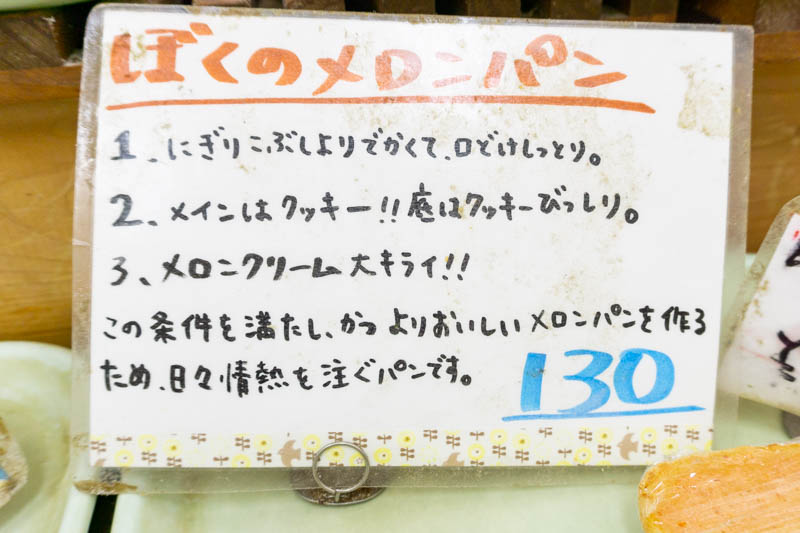 ぼくのメロンパン
1、にぎりこぶしよりでかくて、口どけしっとり。
2、メインはクッキー!!底はクッキーびっしり。
3、メロンクリーム大キライ!!
この条件を満たし、かつよりおいしいメロンパンを作る
ため、日々情熱を注ぐパンです。
130